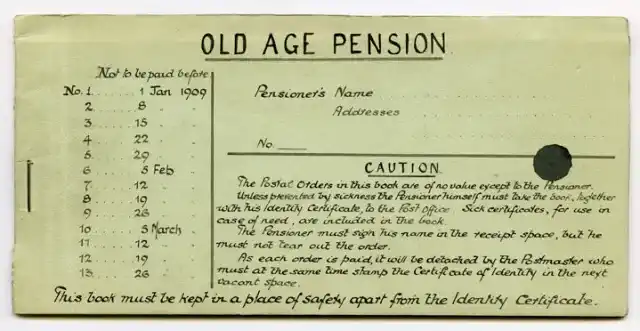 OLD AGE PENSION
Not to be paid before
No. 1 ........ 1 Jan 1909
2 ........ 8 "
3 ........ 15 "
4 ........ 22 "
5 ........ 29 "
6 ........ 5 Feb
7 ........ 12 "
8 ........ 19 "
9 ........ 26 "
10 ........ 5 March
11 ........ 12 "
12 ........ 19 "
13 ........ 26 "
Pensioner's Name
Addresses
No.
CAUTION
The Postal Orders in this book are of no value except to the Pensioner.
Unless prevented by sickness the Pensioner himself must take the book, together
with his Identity Certificate, to the Post Office. Sick certificates, for use in
case of need, are included in the book.
The Pensioner must sign his name in the receipt space, but he
must not tear out the order.
As each order is paid, it will be detached by the Postmaster who
must at the same time stamp the Certificate of Identity in the next
vacant space.
This book must be kept in a place of safety apart from the Identity Certificate.